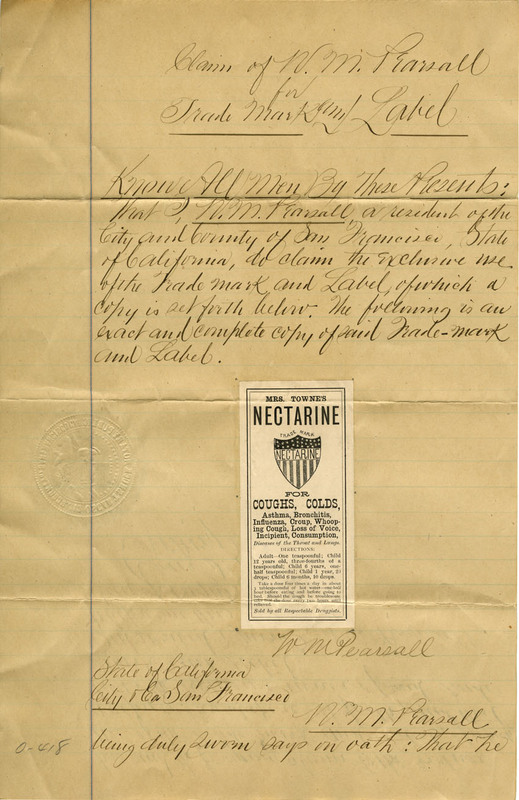 Claim of W. M. Pearsall
for
Trade Mark and Label
Know All Men By These Presents:
That I, W. M. Pearsall, a resident of the
City and County of San Francisco, State
of California, do claim the exclusive use
of the Trade mark and Label, of which a
copy is set forth below. The following is an
exact and complete copy of said Trade-mark
and Label.
MRS. TOWNE'S
NECTARINE
TRADE MARK
NECTARINE
FOR
COUGHS, COLDS,
Asthma, Bronchitis,
Influenza, Croup, Whoop-
ing Cough, Loss of Voice,
Incipient, Consumption,
Diseases of the Throat and Lungs.
DIRECTIONS:
Adult—One teaspoonful; Child
12 years old, three-fourths of a
teaspoonful; Child 6 years, one-
half teaspoonful; Child 1 year, 20
drops; Child 6 months, 10 drops.
Take a dose four times a day in about
a tablespoonful of hot water—one-half
hour before eating and before going to
bed. Should the cough be troublesome
relieved.
Sold by all Respectable Druggists.
W M Pearsall
State of California
City & Co San Francisco
W. M. Pearsall
being duly sworn says on oath: That he
0-418